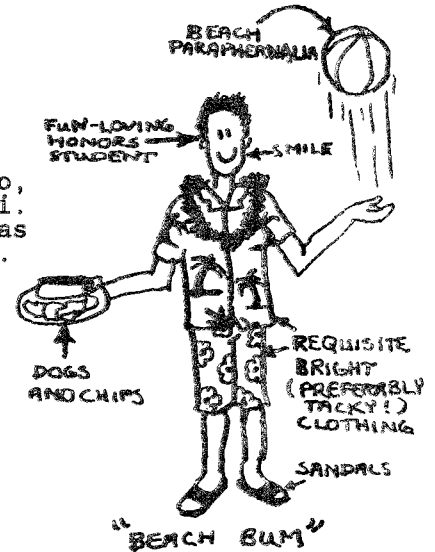 BEACH
PARAPHERNALIA
FUN-LOVING
HONORS
STUDENT
SMILE
o,
i.
as
.
DOGS
AND CHIPS
REQUISITE
BRIGHT
(PREFERABLY
TACKY!)
CLOTHING
SANDALS
"BEACH BUM"